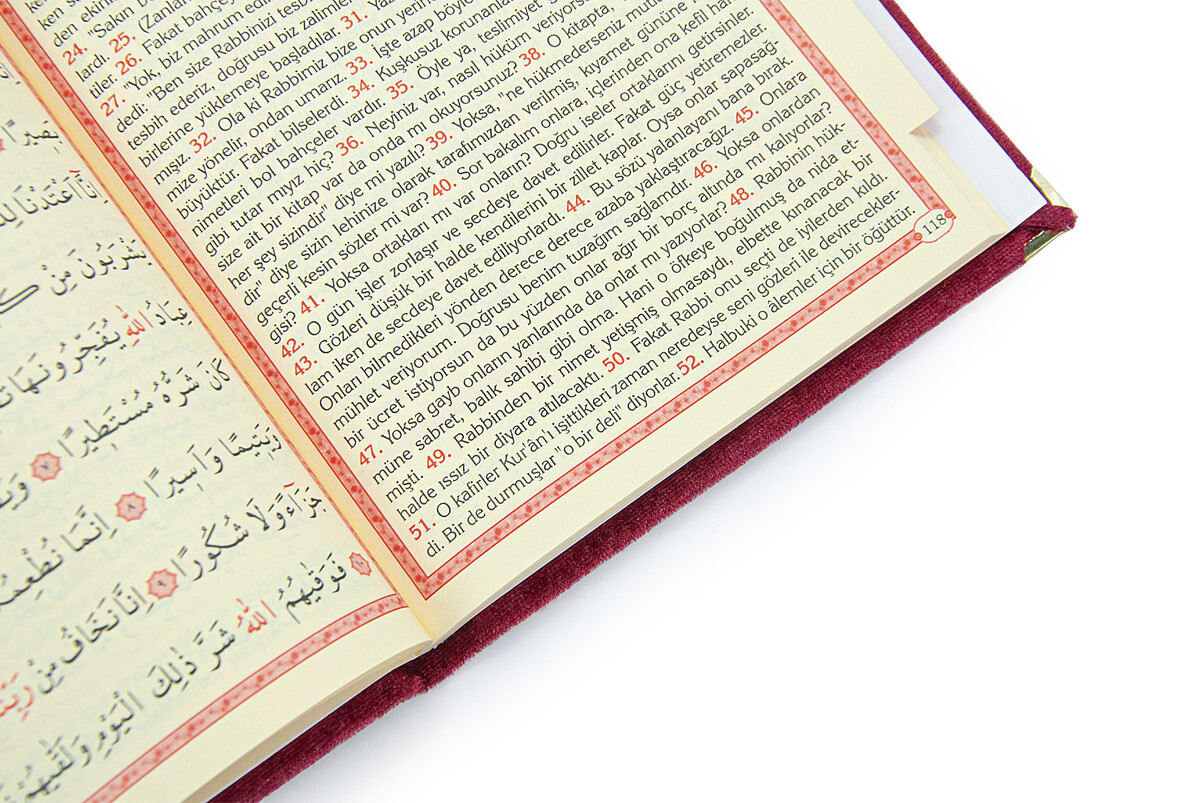 den
24. "Sakın
lardı. 25. (Zanlar
tiler. 26. Fakat
27. "Yok, biz mahrum
dedi: "Ben size Rabbinizi
tesbih ederiz, doğrusu biz zalimler
birlerine yüklemeye başladılar. 31.
mışız. 32. Ola ki Rabbimiz bize onun
mize yönelir, ondan umarız. 33. İşte azap böyle
büyüktür. Fakat bilselerdi. 34. Kuşkusuz
nimetleri bol bahçeler vardır. 35. Öyle ya, teslimiyet
gibi tutar mıyız hiç? 36. Neyiniz var, nasıl hüküm
size ait bir kitap var da onda mı okuyorsunuz? 38. O kitapta,
her şey sizindir" diye mi yazılı? 39. Yoksa, "ne hükmederseniz
dir" diye sizin lehinize olarak tarafımızdan verilmiş, kıyamet gününe
geçerli kesin sözler mi var? 40. Sor bakalım onlara, içlerinden ona kefil
gisi? 41. Yoksa ortakları mı var onların? Doğru iseler ortaklarını getirsinler.
42. O gün işler zorlaşır ve secdeye davet edilirler. Fakat güç yetiremezler.
43. Gözleri düşük bir halde kendilerini bir zillet kaplar. Oysa onlar sapasağ-
lam iken de secdeye davet ediliyorlardı. 44. Bu sözü yalanlayanı bana bırak.
Onları bilmedikleri yönden derece derece azaba yaklaştıracağız. 45. Onlara
mühlet veriyorum. Doğrusu benim tuzağım sağlamdır. 46. Yoksa onlardan
bir ücret istiyorsun da bu yüzden onlar ağır bir borç altında mı kalıyorlar?
47. Yoksa gayb onların yanlarında da onlar mı yazıyorlar? 48. Rabbinin hük-
müne sabret, balık sahibi gibi olma. Hani o öfkeye boğulmuş da nida et-
mişti. 49. Rabbinden bir nimet yetişmiş olmasaydı, elbette kınanacak bir
halde ıssız bir diyara atılacaktı. 50. Fakat Rabbi onu seçti de iyilerden kıldı.
51. O kafirler Kur'ân'ı işittikleri zaman neredeyse seni gözleri ile devirecekler-
di. Bir de durmuşlar "o bir deli" diyorlar. 52. Halbuki o âlemler için bir öğüttür.
118
اِنَّٓا اَعْتَدْنَا
يَشْرَبُونَ مِنْ
عِبَادُ اللّٰهِ يُفَجِّرُونَهَا
كَانَ شَرُّهُ مُسْتَط۪يرًا ٧
وَيَت۪يمًا وَاَس۪يرًا ٨ اِنَّمَا نُطْعِمُ
جَزَٓاءً وَلَا شُكُورًا ٩ اِنَّا نَخَافُ مِنْ
١٠ فَوَقٰيهُمُ اللّٰهُ شَرَّ ذٰلِكَ الْيَوْمِ وَلَقّٰيهُمْ